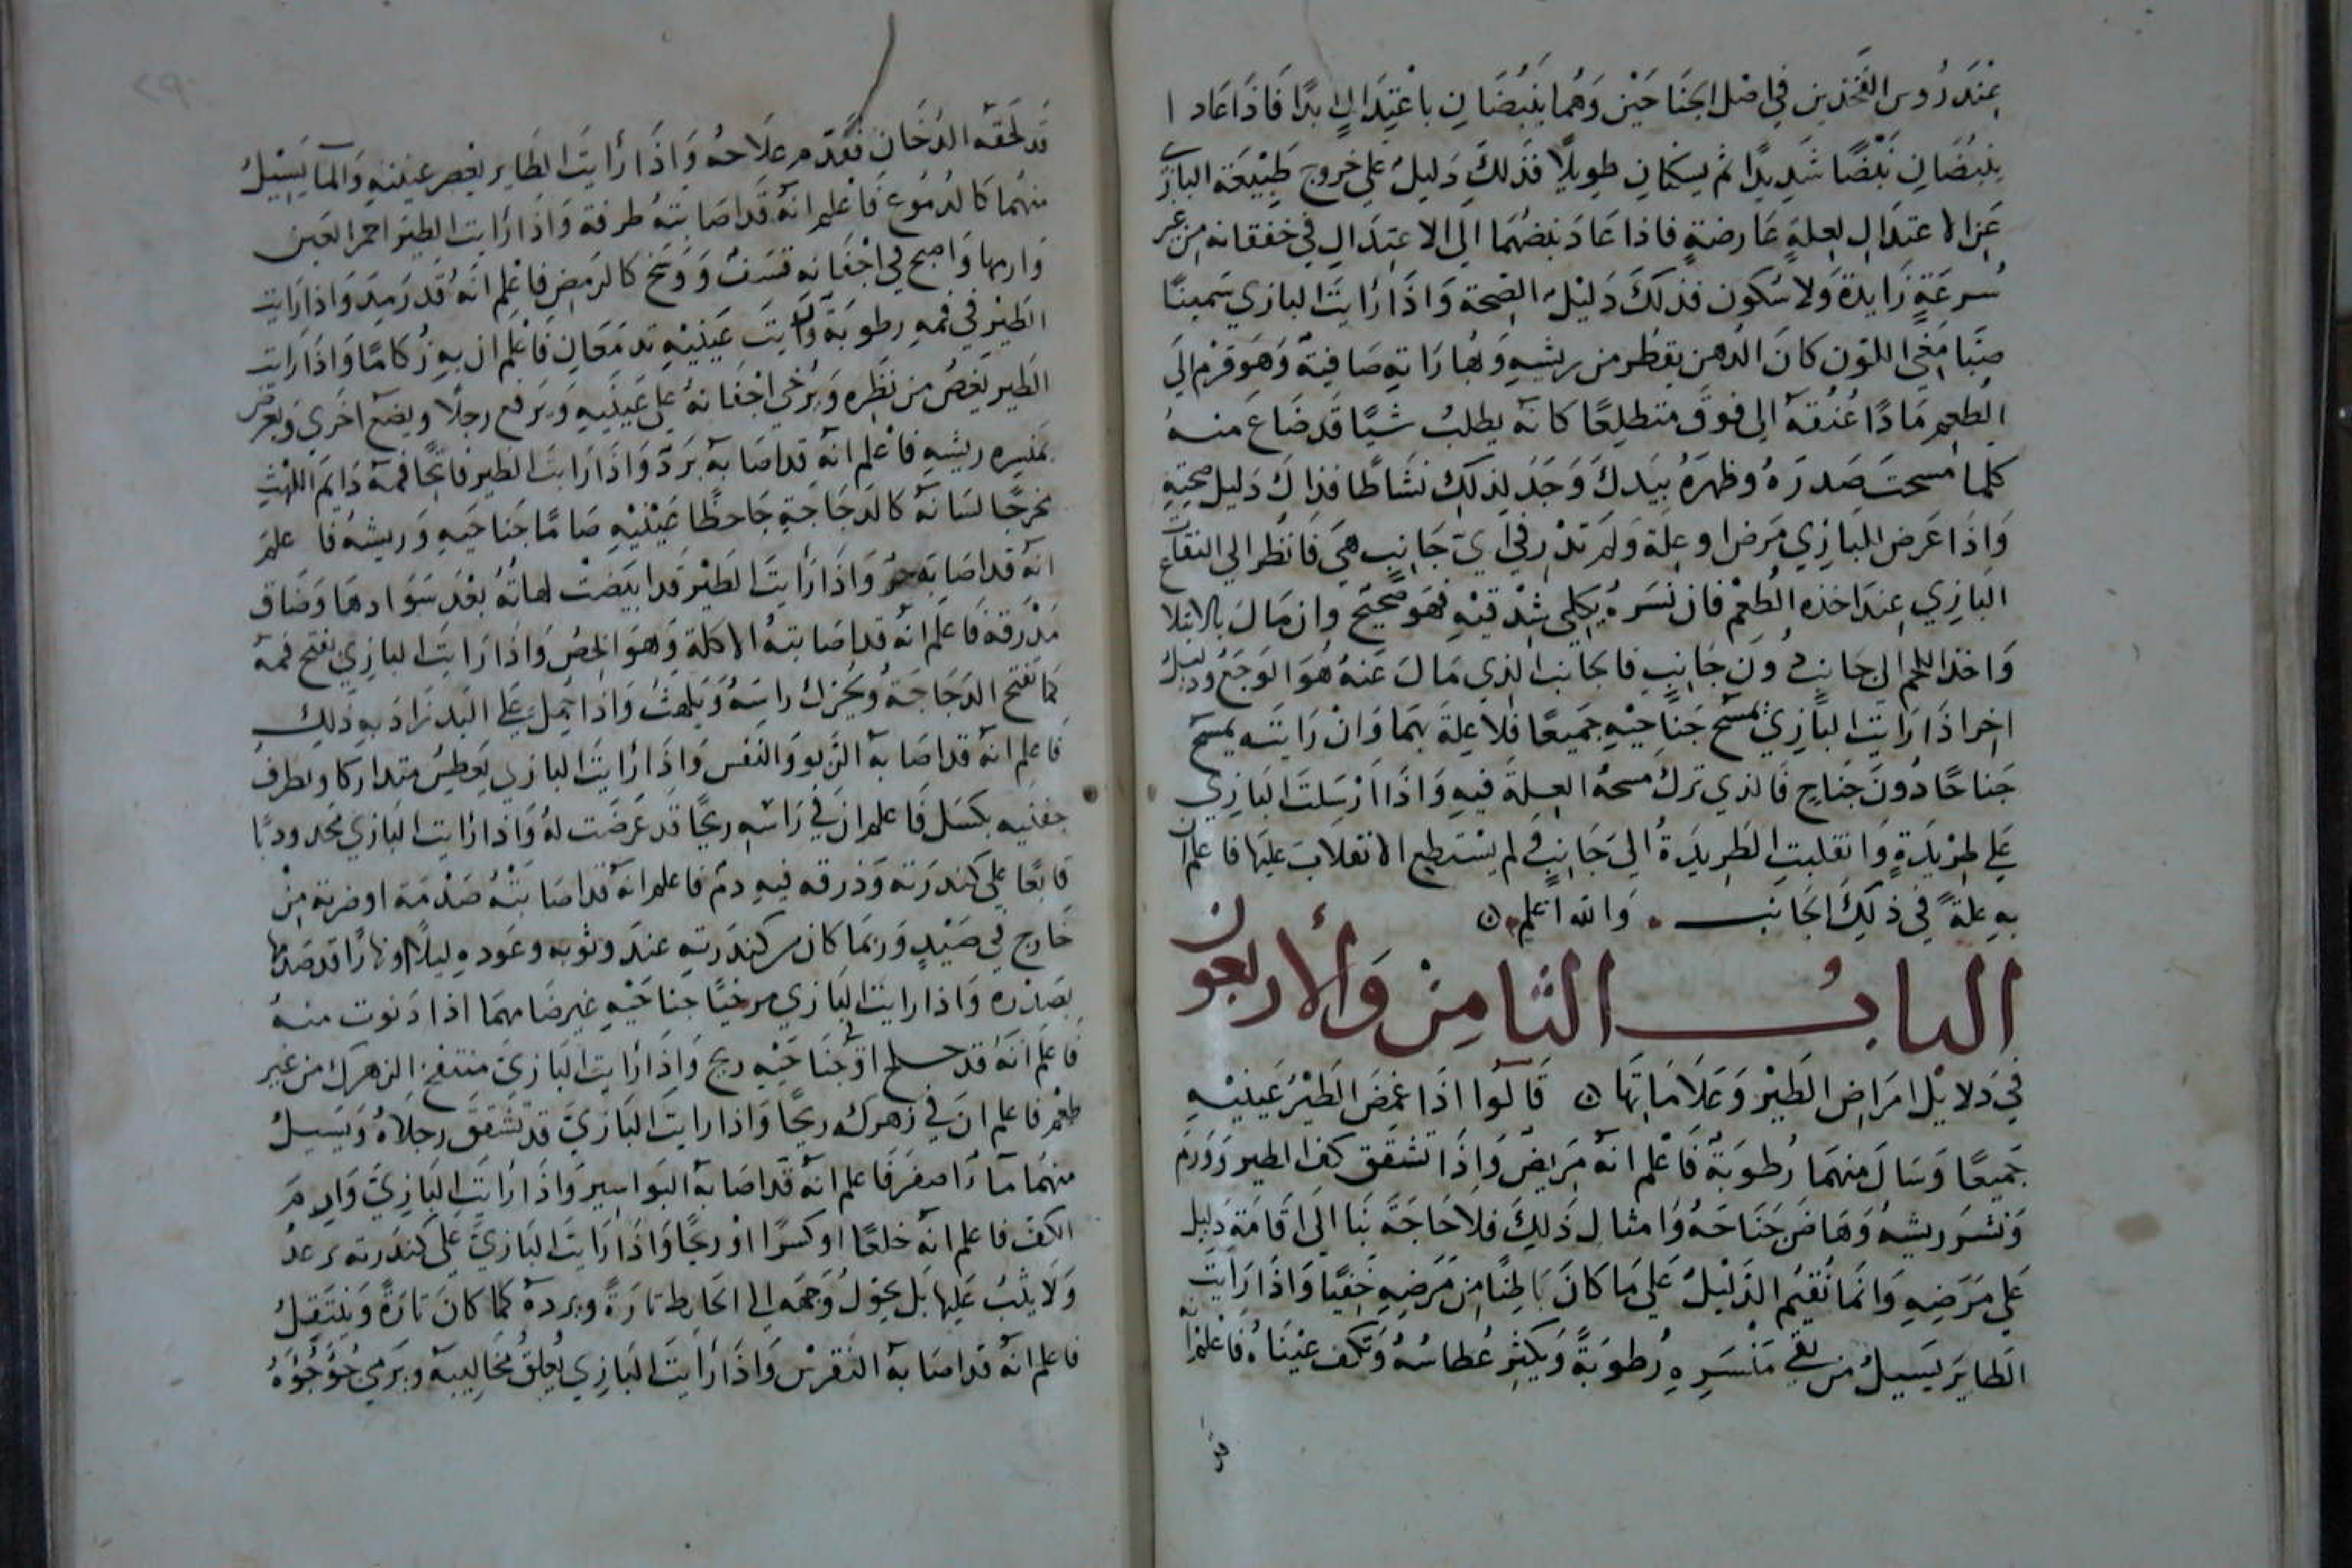 عِنْدَ رُوس الفَخذين في اصْل الجَنَاحَيْن وَهُما يَنبُضَانِ باعْتِدَالٍ بدًا فَاذَا عَادا
ينبُضَانِ نَبْضًا شَدِيدًا ثم يسكنان طويلًا فَذلكَ دَليلُ على خروج طَبِيْعَة البازي
عَنِ الاعتِدَالِ لِعِلةٍ عَارضةٍ فاذا عَادَ نبضُهُمَا الي الاعتِدَالِ في خفقانه من غير
سُرعَةٍ زَايدة وَلا سُكون فذلكَ دَليْلُ الصِحّة وَاذَا رَايتَ البازي سَمينًا
اللون كانَ الدهن يقطر من ريشهِ وَبُهَارَاتهِ صَافيةً وَهَو قرْم الي
الطعمِ مَادًا عُنُقهُ الى فوق متطلعًا كانه يطلبُ شيًا قَد ضَاعَ منهُ
كلما مسحتَ صَدرَهُ وظهرَهُ بيَدكَ وَجَدَ لذلكَ نشَاطًا فذاكَ دَليل صحتهِ
وَاذَا عَرضَ للبازِي مَرض او علة وَلم تدْر في ايّ جَانبٍ هيَ فَانظر الي التقاع
البَازِي عِندَ اخذه الطُعْم فان نسَرهُ بكلي شِدْقيْهِ فهَو صَحيح وان مَالَ بالانثلا
وَاخذ اللحم الى جَانبٍ دُونَ جَانبٍ فالجَانب الذي مَالَ عَنهُ هُوَ الوَجع ودليل
اخر اذَا رَايتَ البازِي يمسَح جَناحَيْهِ جَميعًا فلا عِلة بهمَا وَانْ رَايتَه يمسَح
جَناحًا دُونَ جَناحٍ فَالذي تركَ مسحهُ العِلة فيهِ وَاذَا ارْسَلتَ البَازِي
عَلى طِرْيدةٍ وَانقلبتِ الطَرِيدَةُ الى جَانبٍ لم يسْتطع الانقلابَ عَليهَا فاعلم ان
بهِ علةً في ذلكَ الجَانب • وَالله اعلم •
البابُ الثامِنْ وَالأربعون
في دَلايْل امرَاضِ الطَيْر وَعَلامَاتهَا قَالوُا اذَا غمضَ الطَيْرُ عَينيْهِ
جَميعًا وَسَالَ منهمَا رُطوبَةٌ فَاعْلم انهُ مَريضٌ وَاِذَا تشقق كف الطير وَوَرمَ
وَنسَر ريشهُ وَهَاضَ جَنَاحَهُ وَامثال ذَلِكَ فلا حَاجَةَ بَنا الَى اقامَة دَليل
عَلي مَرَضِهِ وَانمَا نُقيم الدَليْلُ عَلي مَا كانَ بَاطِنًا مِنْ مَرَضِهِ خَفِيًا وَاذَا رَايتَ
الطَايرَ يَسيلُ من مَنسَرِهِ رُطوبَةً وَيكثِر عُطاسُهُ وَتكف عيْنَاهُ فَاعْلم انه
قد
قَد لَحَقهُ الدُخَان فقدّم علَاجهُ وَاِذَا رَأيتَ الطَاير يغصر عَيننيهِ وَالمآ يَسِيْلُ
منهُمَا كالدُمُوع فَاعْلم انهُ قَد اصَابتهُ طرفة وَاذَا رَايتَ الطيرَ احمر العَين
وَارمها وَاصبح في اجْفَانه وَوَسَخ كالرَمصِ فاعْلم انهُ قَد رَمِدَ وَاذا رَايت
الطَيْر في فمهِ رطوبَة وَرَايتَ عَينيْهِ تدمَعَان فَاعْلم ان بهِ زُكامًا وَاذَا رَايت
الطَير يَغصُ من نَظرِه وَيُرخي اجْفَانهُ عَلى عَينَيهِ وَيَرفع رجلًا ويضع اخرَي وَيعرض
بمنسره ريشهِ فاعْلم انهُ قد اصَابهُ بَردٌ وَاذَا رَايتَ الطير فاتحًا فمهُ دَايم اللهْثِ
مخرجًا لسَانهُ كالدجَاجَةِ جَاحظًا عَيْنيْهِ ضامًا جَناحَيهِ وَريشهُ فاعلم
انهُ قد اصَابَه حرٌ وَاذَا رَايتَ الطَيْر قد ابيَضتْ لهاتُهُ بعْدَ سَوَادهَا وَضَاق
مَذْرقهُ فاعلَم انهُ قد اصَابتهُ الاكلة وَهوَ الحصُ وَاذَا رَايتَ البازِي يفتح فمهُ
كما تفتح الدَجَاجَةُ وَيُحَرك راسَهُ وَيَلهثُ وَاذَا حُمل عَلى اليَد زَادَ بهِ ذَلِك
فاعلم انهُ قد اصَابهُ الرَبو وَالنَفس وَاِذَا رَايتَ البازي يَعطِسُ متداركا ويطرف
جفنيه بكسَل فَاعلم ان في رَاسِه ريحًا قد عَرَضَت لهُ وَاذا رَايت البَازي مُحدودبًا
قابعًا على كندرَته وَذرقه فيهِ دمٌ فاعلم انهُ قد اصَابَتهُ صَدْمَة او ضربة مِنْ
خَارج في صَيْدٍ وَربَمَا كان من كندَرتهِ عندَ وثوبه وعَودهِ ليلاً او نهارًا قد صَدمها
بصَدْره وَاذا رايت البَازي مرخيًا جناحَيْهِ غير ضامهمَا اذا دَنوت منهُ
فاعلَم انهُ قد او في جناحَيْهِ ريح وَاِذَا رَايت البَازيَ منتفخ الزهرك من غير
طعْم فاعلم انَ في زهرك ريحًا وَاذا رايت البَازيَ قد تشقق رجلاهُ وَيَسيلُ
منهُمَا مآءً اصفرَ فَاعلم انهُ قد اصَابهُ البَوَاسِير وَاذَا رَايتَ البَازِيَ وَارِم
الكف فاعلم انهُ خلعًا او كسرًا اوْ ريحًا وَاذَا رَايتَ البَازيَ عَلى كندَرته يرعدُ
وَلَا يثبُ عَليها بَل يحوّلُ وَجهَه الي الحايط تارَةً وبردهُ كما كانَ تارَةً وَينتقلُ
فاعلم انهُ قد اصَابهُ النقرسْ وَاذَا رَايتَ البَازِي يُعلق مخَاليبهُ ويَرمي جُؤجُؤهُ